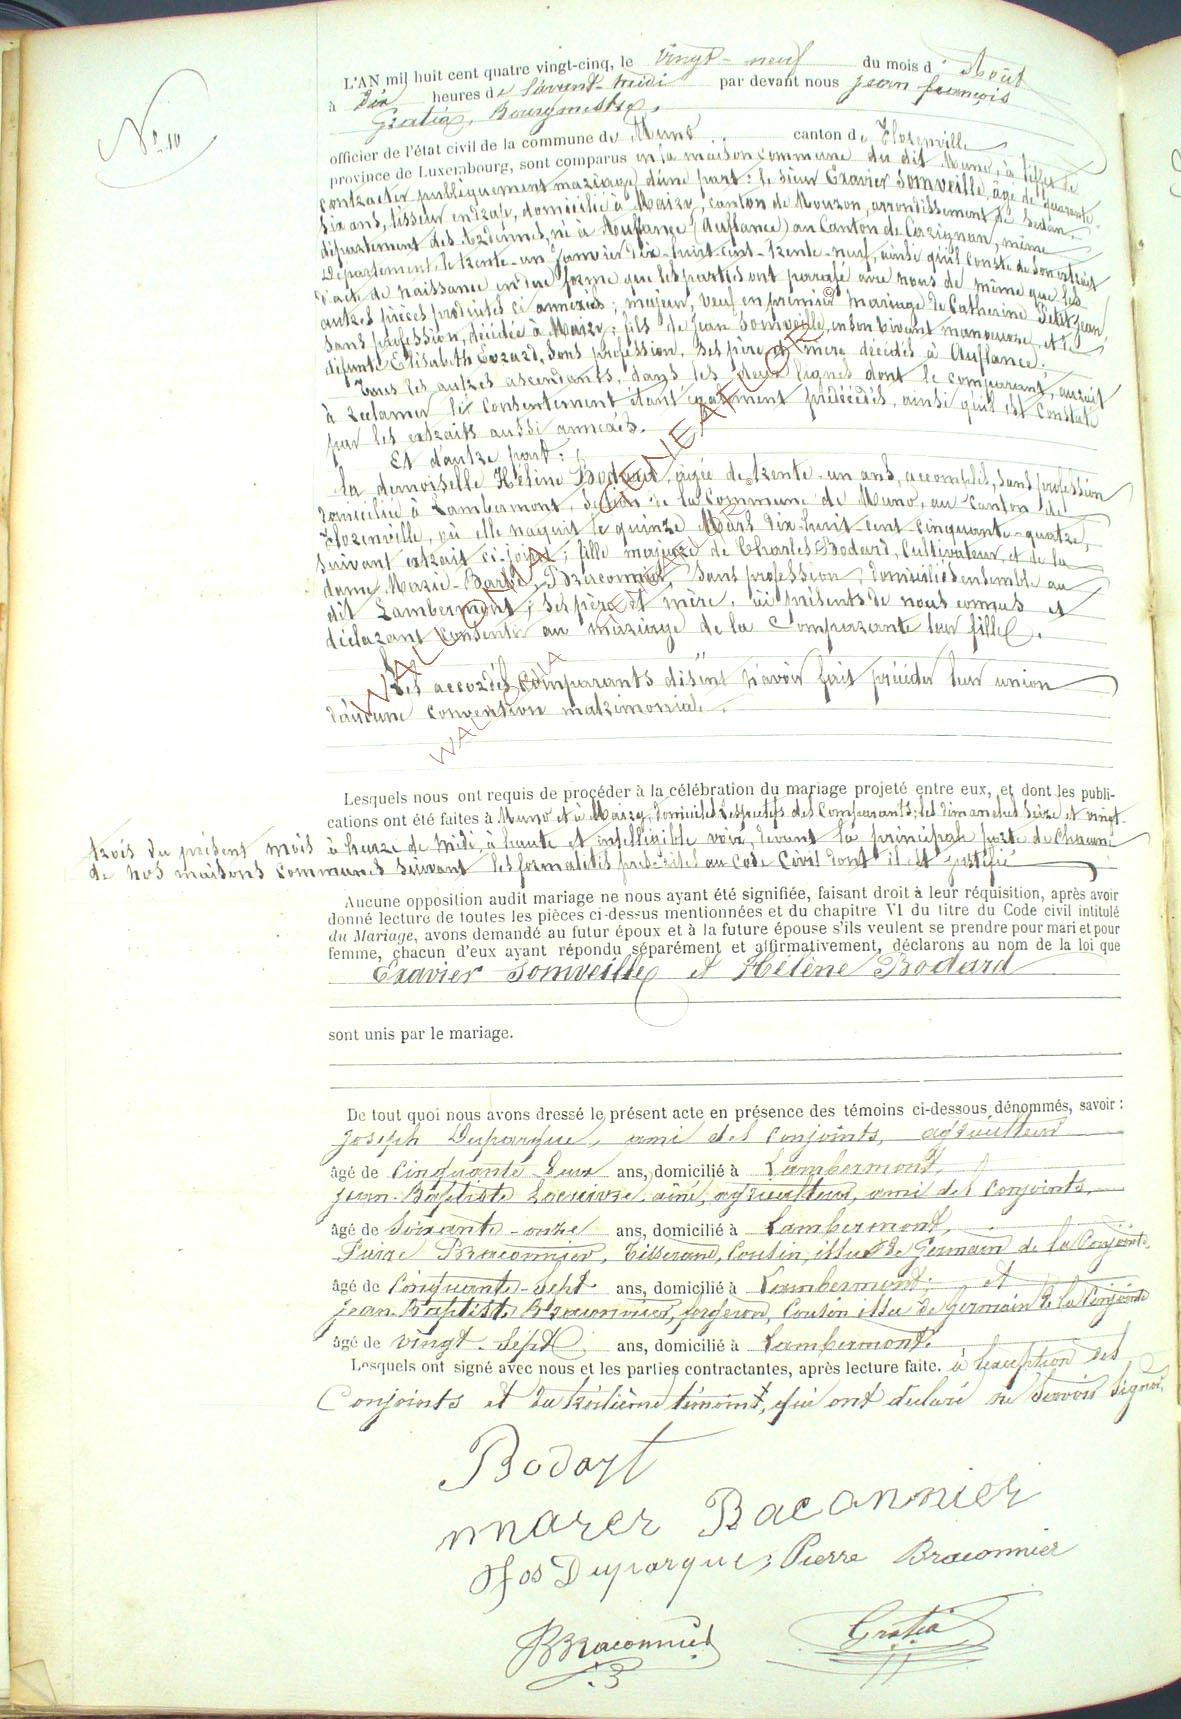 No 10
L'AN mil huit cent quatre vingt-cinq, le vingt-neuf du mois d'Août
à dix heures de l'avant-midi par devant nous Jean François
Gratia, Bourgmestre,
officier de l'état civil de la commune de Muno canton de Florenville
province de Luxembourg, sont comparus en la maison commune du dit Muno, à l'effet de
contracter publiquement mariage, d'une part : le sieur Exavier Somveille, âgé de quarante-
six ans, tisseur en drap, domicilié à Mairy, canton de Mouzon, arrondissement de Sedan,
département des Ardennes, né à Auflance (Auflance) au Canton de Carignan, même
Département, le trente-un Janvier dix-huit-cent-trente-neuf, ainsi qu'il conste de son extrait
d'acte de naissance en due forme que les parties ont parafé avec nous de même que les
autres pièces produites ci annexées ; majeur, veuf en premier mariage de Catherine Petitjean,
sans profession, décédée à Mairy ; fils de Jean Somveille, en son vivant manœuvre, et de
défunte Elisabeth Evrard, sans profession, ses père et mère décédés à Auflance ;
Tous les autres ascendants, dans les deux lignes dont le comparant, aurait
à réclamer le consentement étant également prédécédés, ainsi qu'il est constaté
par les extraits aussi annexés.
Et d'autre part :
la demoiselle Hélène Bodard, âgée de trente-un ans, accomplis, sans profession
domiciliée à Lambermont, section de la commune de Muno, au canton de
Florenville, où elle naquit le quinze Mars dix-huit-cent-cinquante-quatre,
suivant extrait ci-joint ; fille majeure de Charles Bodard, Cultivateur, et de la
dame Marie-Barbe Braconnier, sans profession, domiciliés ensemble au
dit Lambermont ; ses père et mère, ici présents de nous connus et
déclarant consentir au mariage de la Comparante leur fille.
Les accordés comparants disent n'avoir fait précéder leur union
d'aucune convention matrimoniale.
Lesquels nous ont requis de procéder à la célébration du mariage projeté entre eux, et dont les publi-
cations ont été faites à Muno et à Mairy, domiciles respectifs des Comparants ; les dimanches seize et vingt-
trois du présent mois à heure de midi, à haute et intelligible voix, devant la principale porte de Chacune
de nos maisons Communes suivant les formalités prescrites au Code Civil dont il est justifié
Aucune opposition audit mariage ne nous ayant été signifiée, faisant droit à leur réquisition, après avoir
donné lecture de toutes les pièces ci-dessus mentionnées et du chapitre VI du titre du Code civil intitulé
du Mariage, avons demandé au futur époux et à la future épouse s'ils veulent se prendre pour mari et pour
femme, chacun d'eux ayant répondu séparément et affirmativement, déclarons au nom de la loi que
Exavier Somveille et Hélène Bodard
sont unis par le mariage.
De tout quoi nous avons dressé le présent acte en présence des témoins ci-dessous dénommés, savoir :
Joseph Duparque, ami des conjoints, agriculteur
âgé de Cinquante-deux ans, domicilié à Lambermont,
Jean-Baptiste aîné, agriculteur, ami des conjoints,
âgé de Soixante-onze ans, domicilié à Lambermont,
Pierre Braconnier, Tisserand, Cousin, issu de Germain de la Conjointe,
âgé de Cinquante-sept ans, domicilié à Lambermont ; et
Jean-Baptiste Braconnier, forgeron, Cousin issu de germain de la Conjointe
âgé de vingt-sept ans, domicilié à Lambermont.
Lesquels ont signé avec nous et les parties contractantes, après lecture faite. à l'exception des
Conjoints et du témoin, qui ont déclaré ne savoir signer.
Bodart
marer Baconnier
Jos Duparque, Pierre Braconnier
JBBraconnier Gratia
WALLONIA © GENEAFLOR ©
WALLONIA GENEAFLOR